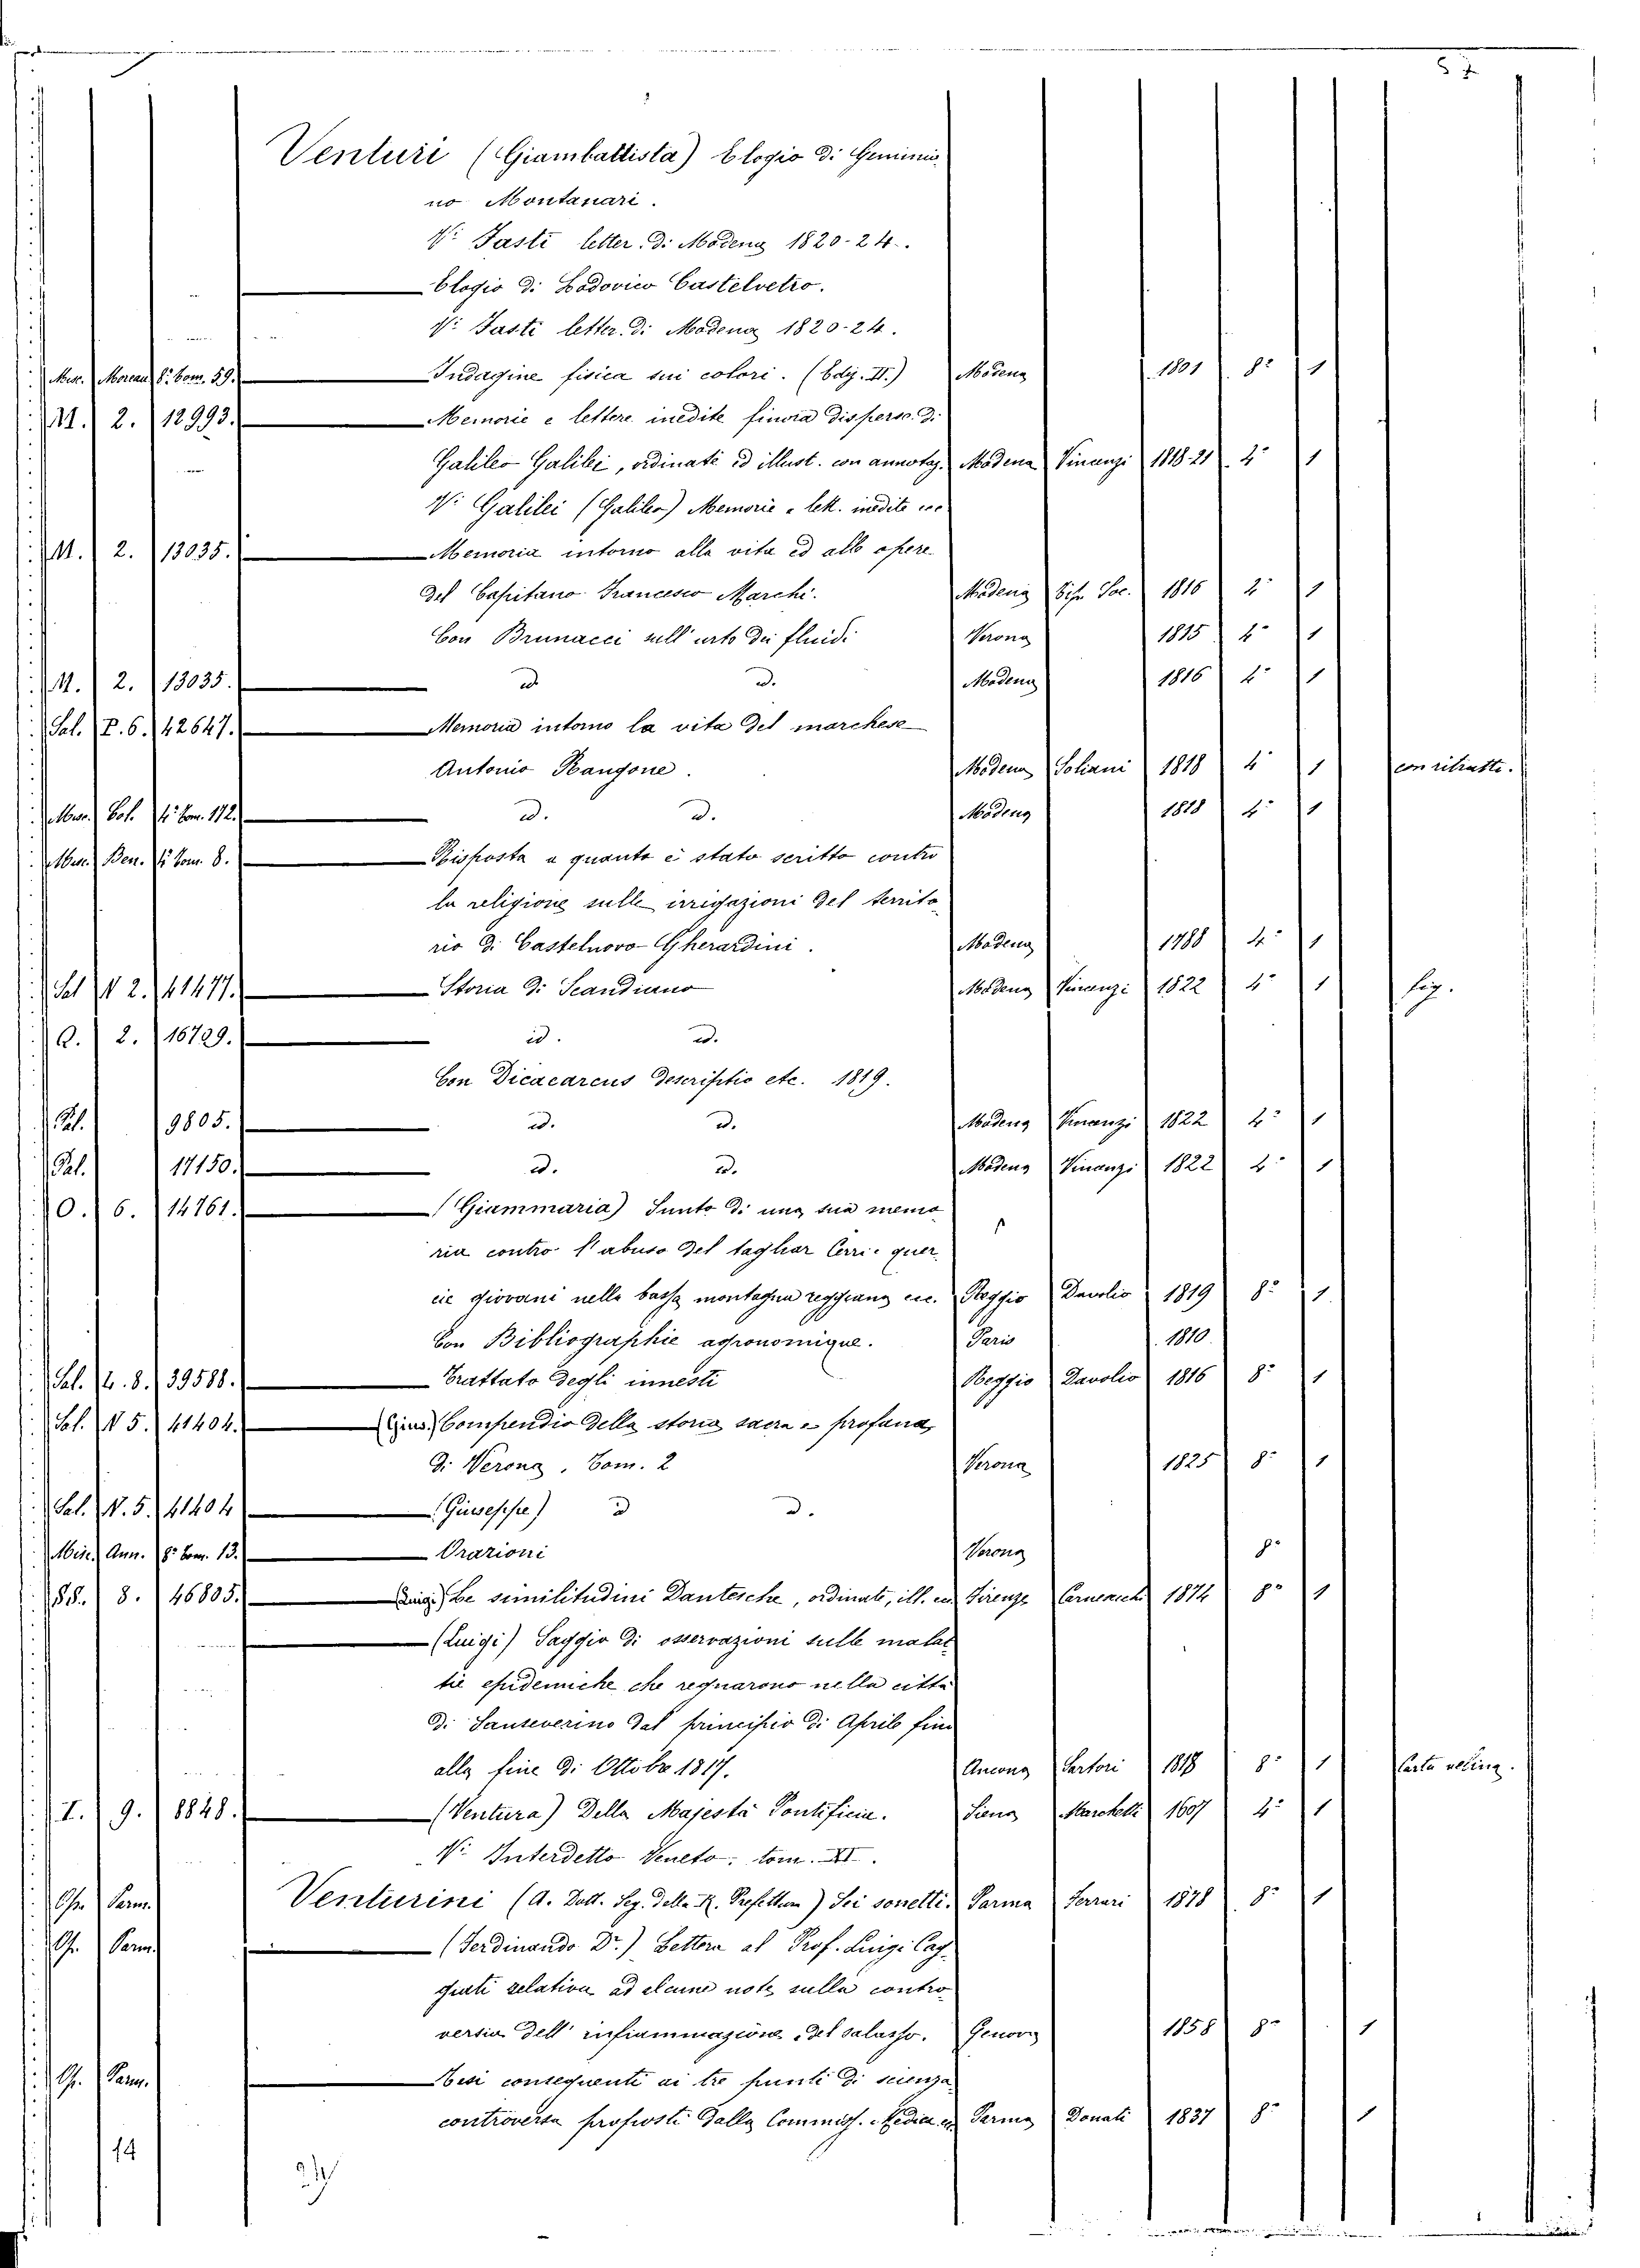 57
Venturi (Giamballista) Elogio di Geminia
no Montanari.
V. Fasti letter. di Modena 1820-24.
Elogio di Lodovico Castelvetro.
V. Fasti letter. di Modena 1820-24.
Misc. Moreau 8.° tom. 59. Indagine fisica sui colori. (Ediz. II.) Modena 1801 8.° 1
M. 2. 12993. Memorie e lettere inedite finora disperse di
Galileo Galilei, ordinate ed illust. con annotaz. Modena Vincenzi 1818-21 4.° 1
V. Galilei (Galileo) Memorie e lett. inedite ecc
M. 2. 13035. Memoria intorno alla vita ed alle opere
del Capitano Francesco Marchi. Modena Tip. Soc. 1816 4.° 1
Con Brunacci sull' urto dei fluidi Verona 1815 4.° 1
M. 2. 13035. id. id. Modena 1816 4.° 1
Sal. P. 6. 42647. Memoria intorno la vita del marchese
Antonio Rangone. Modena Soliani 1818 4.° 1 con ritratto.
Misc. Col. 4.° tom. 172. id. id. Modena 1818 4.° 1
Misc. Ben. 4.° tom. 8. Risposta a quanto è stato scritto contro
la religione sulle irrigazioni del territo
rio di Castelnovo-Gherardini. Modena 1788 4.° 1
Sal. N 2. 41477. Storia di Scandiano Modena Vincenzi 1822 4.° 1 fig.
Q. 2. 16729. id. id.
Con Dicaearcus Descriptio etc. 1819.
Pal. 9805. id. id. Modena Vincenzi 1822 4.° 1
Pal. 17150. id. id. Modena Vincenzi 1822 4.° 1
O. 6. 14761. (Giammaria) Sunto di una sua memo
ria contro l'abuso del tagliar Cerri e quer
cie giovani nella bassa montagna reggiana ecc. Reggio Davolio 1819 8.° 1
Con Bibliographie agronomique. Paris 1810.
Sal. L. 8. 39588. Trattato degli innesti Reggio Davolio 1816 8.° 1
Sal. N 5. 41404. (Gius.) Compendio della storia sacra e profana
di Verona. Tom. 2 Verona 1825 8.° 1
Sal. N. 5. 41404 (Giuseppe) id id.
Misc. Ann. 8.° tom. 13. Orazioni Verona 8.°
SS. 8. 46805. (Luigi) Le similitudini Dantesche, ordinate, ill. ecc Firenze 1874 8.° 1
(Luigi) Saggio di osservazioni sulle malat
tie epidemiche che regnarono nella città
di Sanseverino dal principio di Aprile fino
alla fine di Ottobre 1817. Ancona Sartori 1818 8.° 1 Carta velina.
I. 9. 8848. (Ventura) Della Majestà Pontificia. Siena Marchetti 1607 4.° 1
V. Interdetto Veneto. tom. XI.
Op. Parm. Venturini (A. Dott. Seg. della R. Prefettura) Sei sonetti. Parma Ferrari 1878 8.° 1
Op. Parm. (Ferdinando Dr.) Lettera al Prof. Luigi Cag
giati relativa ad alcune note sulla contro
versia dell' infiammazione e del salasso. Genova 1858 8.° 1
Op. Parm. Tesi conseguenti ai tre punti di scienza
controversa proposti dalla Commiss. Medica ecc Parma Donati 1837 8.° 1
14